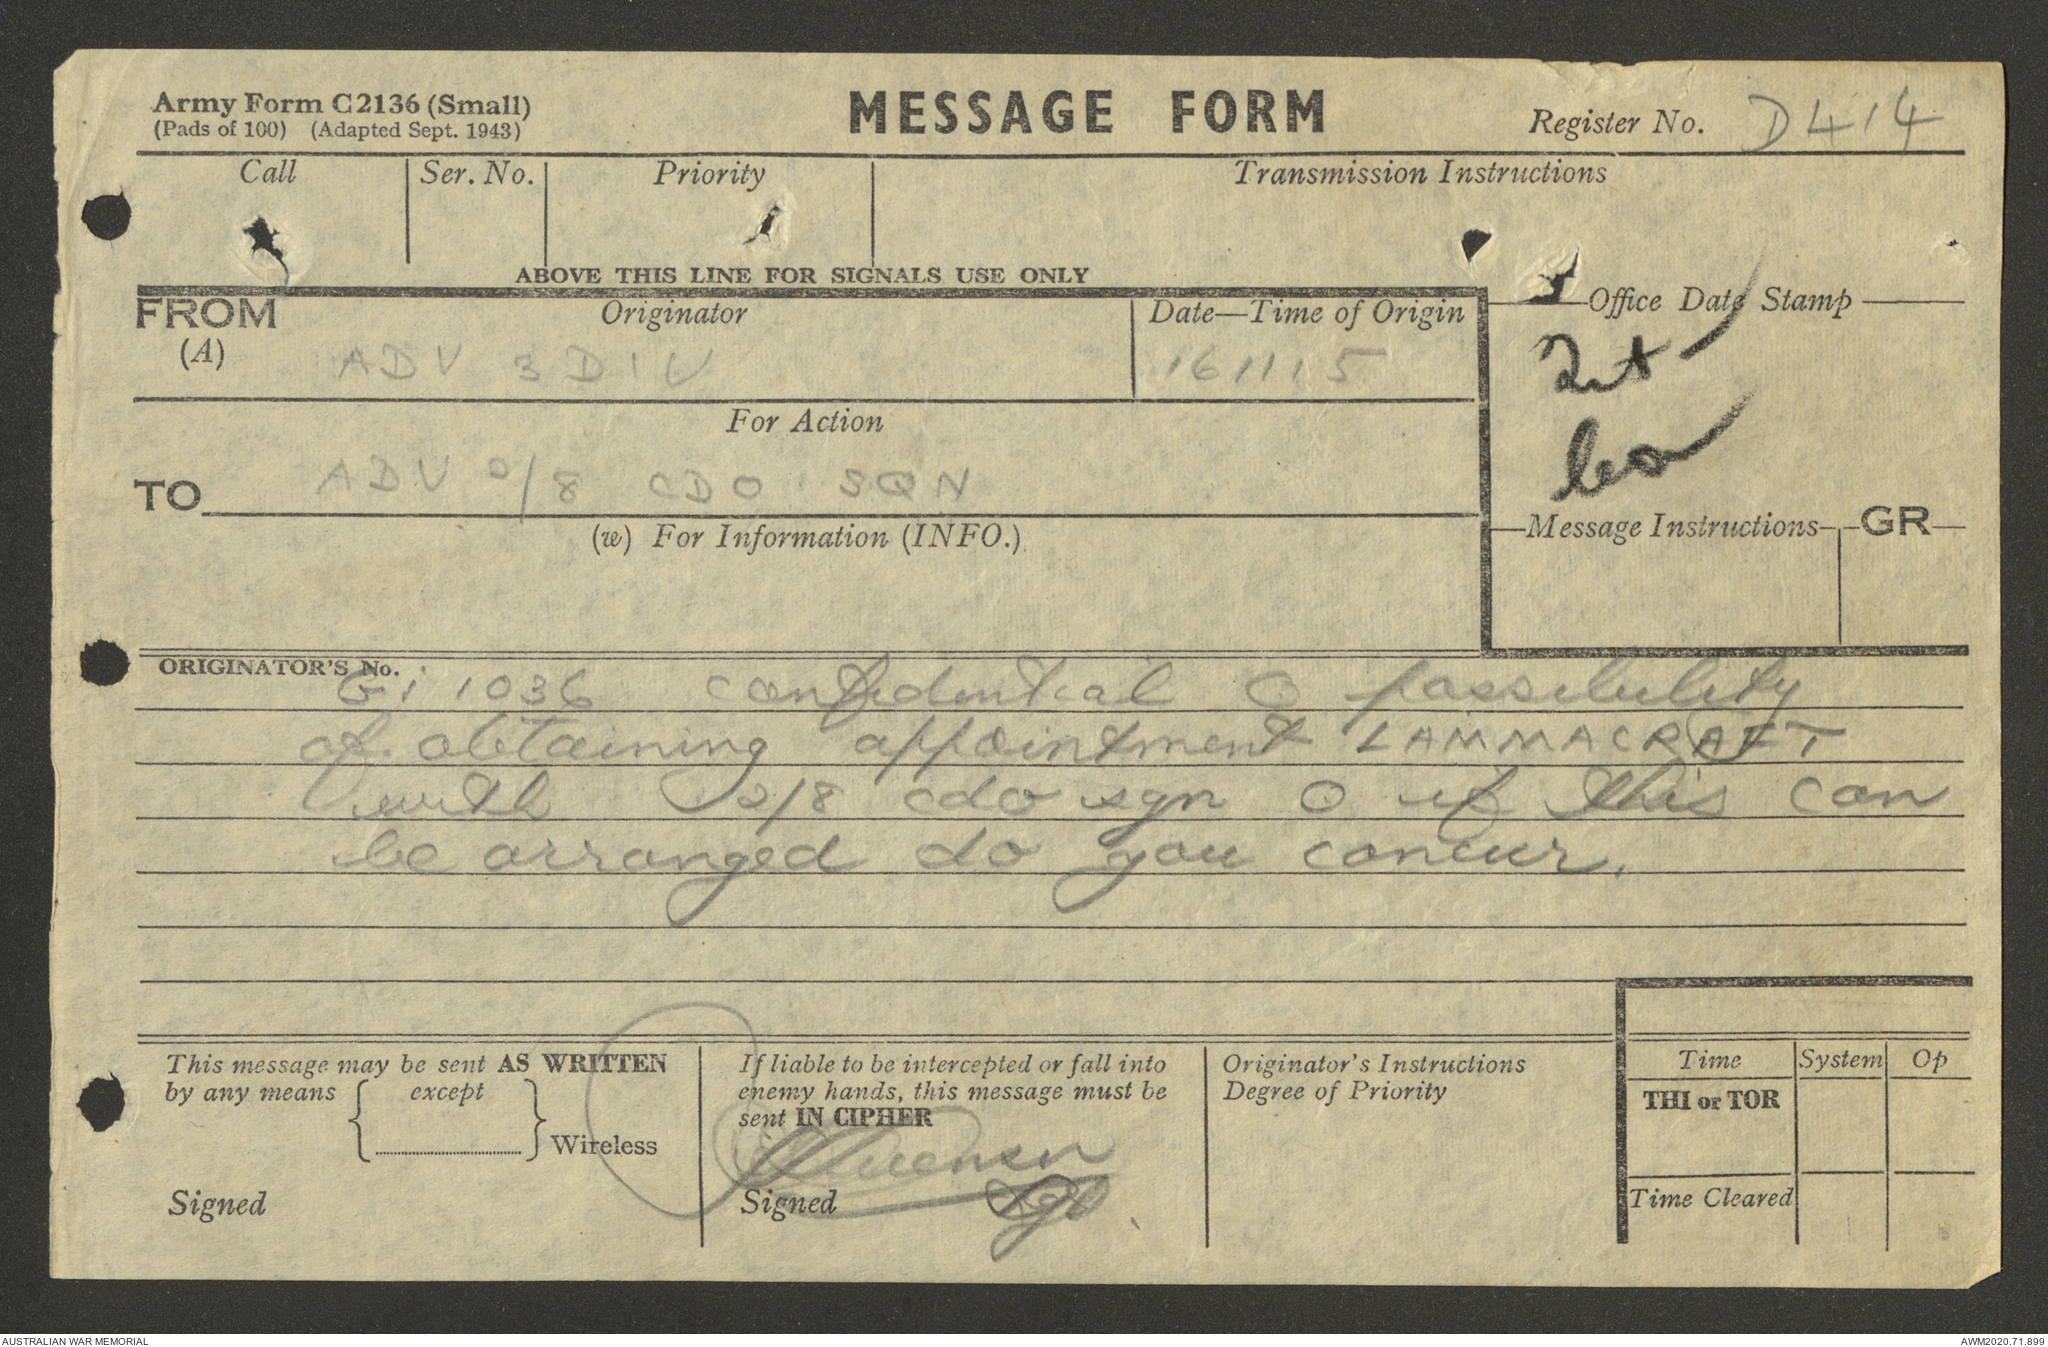 Army Form C2136 (Small)
(Pads of 100) (Adapted Sept. 1943)
MESSAGE FORM
Register No. D414
Call Ser. No. Priority Transmission Instructions
ABOVE THIS LINE FOR SIGNALS USE ONLY
FROM (A)
Originator
ADV 3 DIV
Date—Time of Origin
161115
Office Date Stamp
For Action
TO ADV 2/8 CDO SQN
(w) For Information (INFO.)
Message Instructions GR
ORIGINATOR'S No.
Gi 1036 confidential O possibility
of obtaining appointment LAMMACRAFT
with 2/8 cdo sqn O if this can
be arranged do you concur.
This message may be sent AS WRITTEN
by any means except
Wireless
Signed
If liable to be intercepted or fall into
enemy hands, this message must be
sent IN CIPHER
Signed
Originator's Instructions
Degree of Priority
Time System Op
THI or TOR
Time Cleared
AUSTRALIAN WAR MEMORIAL
AWM2020.71.899